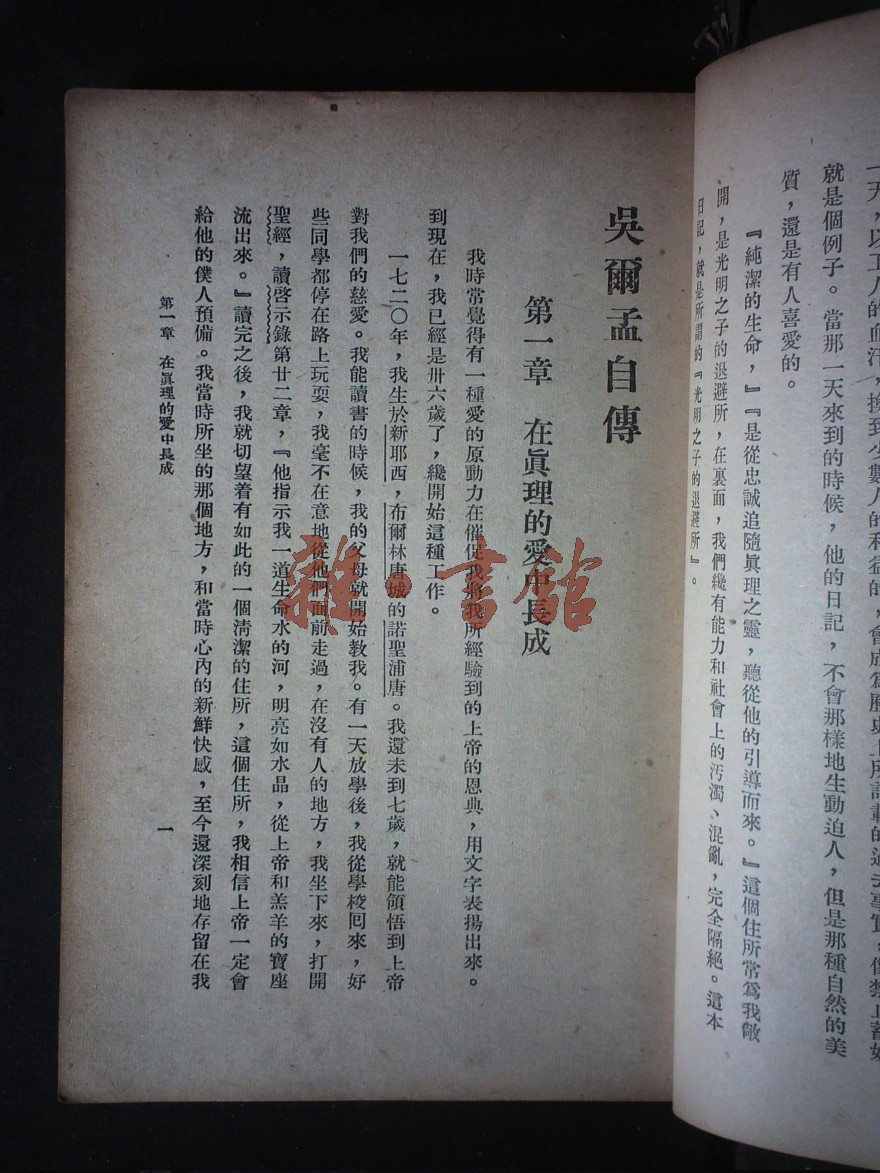 就是個例子。當那一天來到的時候，他的日記，不會那樣地生動迫人，但是那種自然的美
質，還是有人喜愛的。
『純潔的生命，』『是從忠誠追隨眞理之靈，聽從他的引導而來。』這個住所常爲我敞
開，是光明之子的退避所，在裏面，我們纔有能力和社會上的汚濁、混亂，完全隔絕。這本
日記，就是所謂的『光明之子的退避所』。
吳爾孟自傳
第一章 在眞理的愛中長成
我時常覺得有一種愛的原動力在催促我將我所經驗到的上帝的恩典，用文字表揚出來。
到現在，我已經是卅六歲了，纔開始這種工作。
一七二〇年，我生於新耶西，布爾林唐城的諾聖浦唐。我還未到七歲，就能領悟到上帝
對我們的慈愛。我能讀書的時候，我的父母就開始教我。有一天放學後，我從學校回來，好
些同學都停在路上玩耍，我毫不在意地從他們面前走過，在沒有人的地方，我坐下來，打開
聖經，讀啓示錄第廿二章，『他指示我一道生命水的河，明亮如水晶，從上帝和羔羊的寶座
流出來。』讀完之後，我就切望着有如此的一個清潔的住所，這個住所，我相信上帝一定會
給他的僕人預備。我當時所坐的那個地方，和當時心內的新鮮快感，至今還深刻地存留在我
第一章 在眞理的愛中長成
一
雜·書館